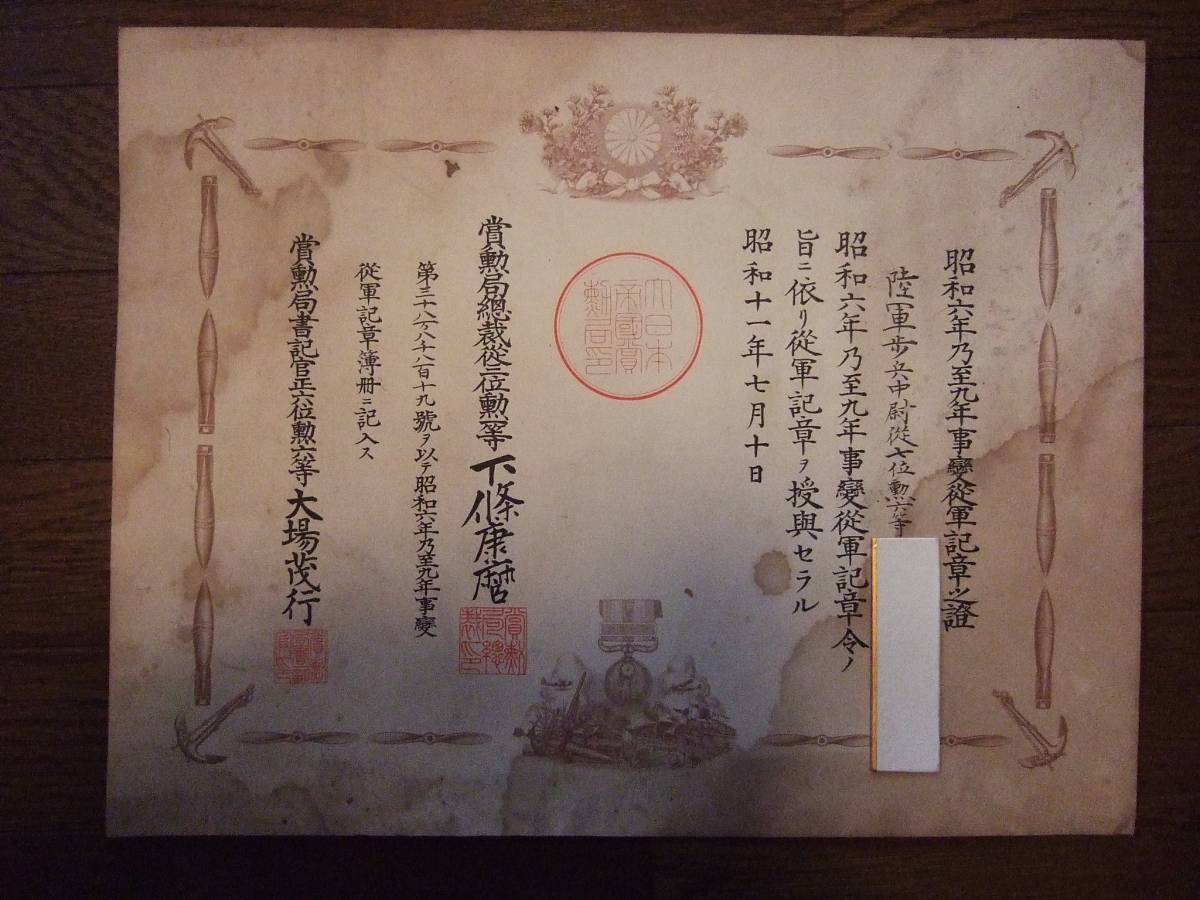 昭和六年乃至九年事變從軍記章之證
陸軍歩兵中尉從七位勲六等
昭和六年乃至九年事變從軍記章令ノ
旨ニ依リ從軍記章ヲ授與セラル
昭和十一年七月十日
大日本
帝國賞
勲局印
賞勲局總裁從三位勲一等下條康麿
賞勲
局總
裁印
第三十八万八千八百十九號ヲ以テ昭和六年乃至九年事變
從軍記章簿册ニ記入ス
賞勲局書記官正六位勲六等大場茂行